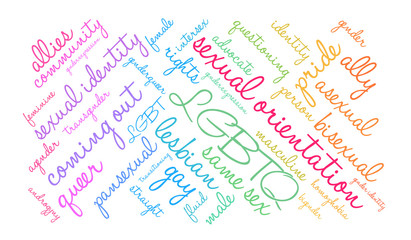 allies
community
genderexpression
feminine
sexual identity
transgender
agender
coming out
androgyny
queer
female
intersex
rights
genderqueer
LGBT
pansexual
transitioning
straight
lesbian
gay
fluid
male
same sex
LGBTQ
advocate
genderexpression
questioning
sexual orientation
identity
person
pride
masculine
homophobia
bigender
gender
ally
asexual
bisexual
gender identity